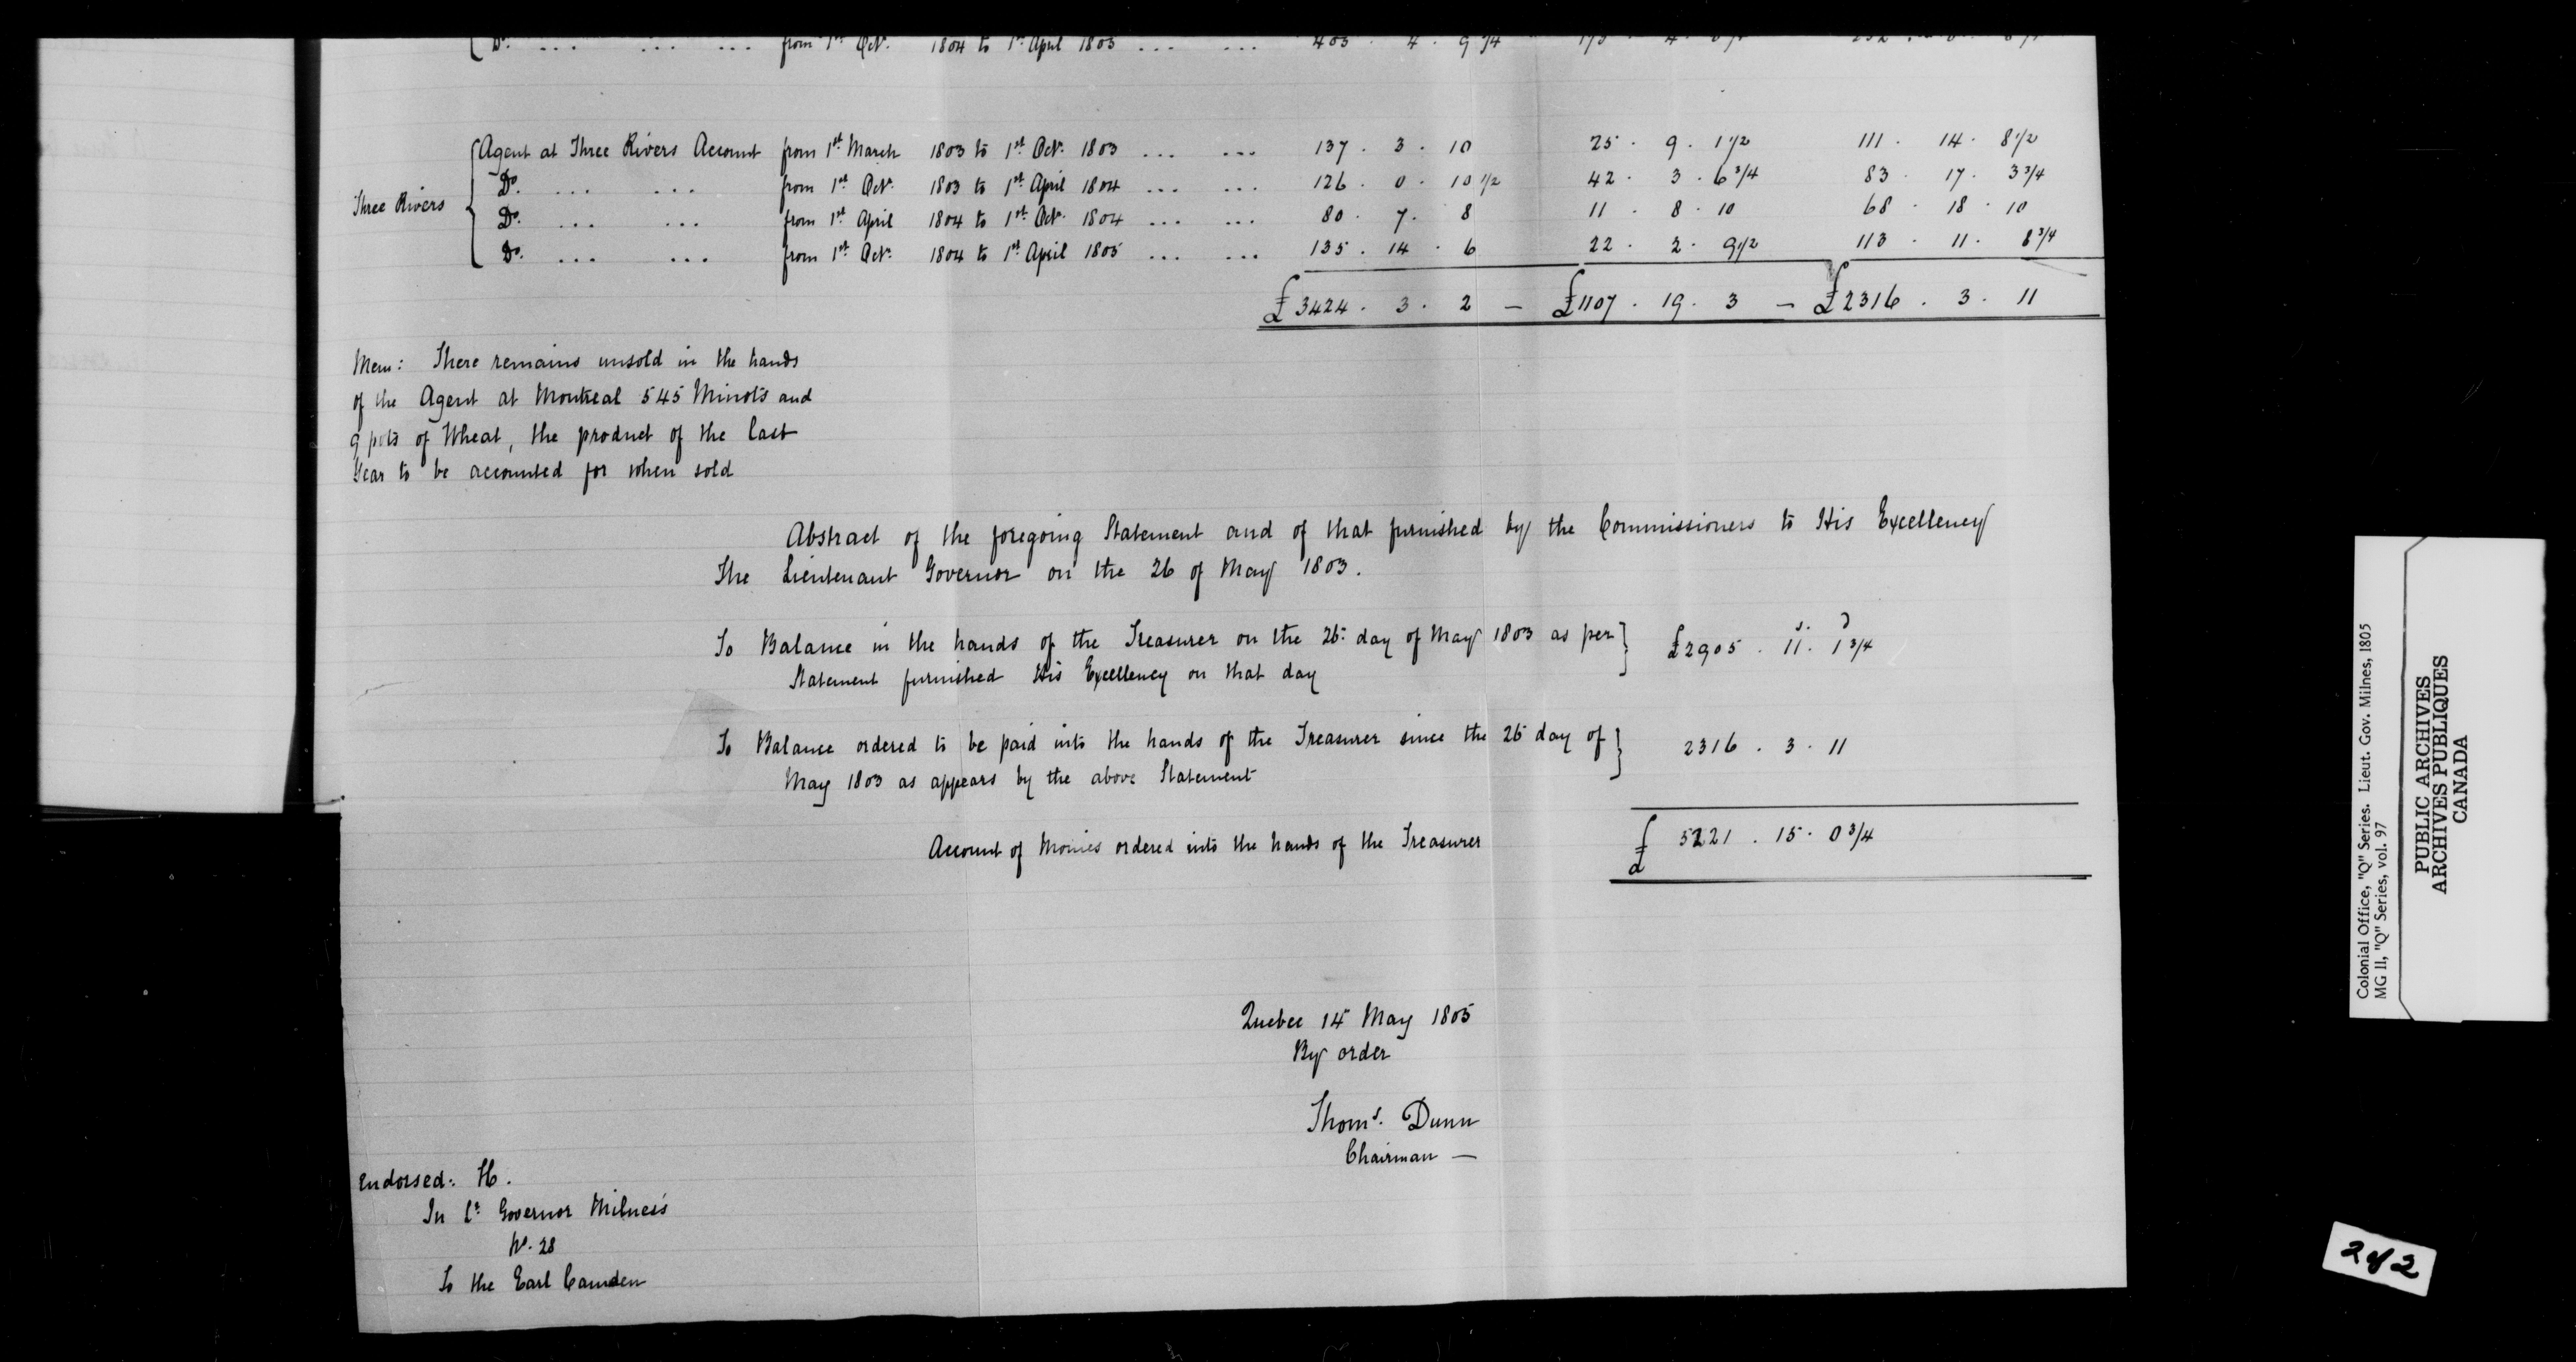 Do. ... ... ... from 1st Octr. 1804 to 1st April 1805 ... ... 403 . 4 . 9 3/4
Agent at Three Rivers Account from 1st March 1803 to 1st Octr. 1803 ... ... 137 . 3 . 10 25 . 9 . 1 1/2 111 . 14 . 8 1/2
Do. ... ... from 1st Octr. 1803 to 1st April 1804 ... ... 126 . 0 . 10 1/2 42 . 3 . 6 3/4 83 . 17 . 3 3/4
Three Rivers
Do. ... ... from 1st April 1804 to 1st Octr. 1804 ... ... 80 . 7 . 8 11 . 8 . 10 68 . 18 . 10
Do. ... ... from 1st Octr. 1804 to 1st April 1805 ... ... 135 . 14 . 6 22 . 2 . 9 1/2 113 . 11 . 8 3/4
£3424 . 3 . 2 — £1107 . 19 . 3 — £2316 . 3 . 11
Mem: There remains unsold in the hands
of the Agent at Montreal 545 Minots and
9 pots of Wheat, the product of the last
Year to be accounted for when sold
Abstract of the foregoing Statement and of that furnished by the Commissioners to His Excellency
The Lieutenant Governor on the 26 of May 1803.
To Balance in the hands of the Treasurer on the 26 day of May 1803 as per
Statement furnished His Excellency on that day
£2905 . 11 . 1 3/4
To Balance ordered to be paid into the hands of the Treasurer since the 26 day of
May 1803 as appears by the above Statement
2316 . 3 . 11
Account of Monies ordered into the hands of the Treasurer £ 5221 . 15 . 0 3/4
Quebec 14 May 1805
By order
Thoms. Dunn
Chairman —
Endorsed: H.
In Lt Governor Milnes's
No. 28
To the Earl Camden
Colonial Office, "Q" Series. Lieut. Gov. Milnes, 1805
MG 11, "Q" Series, vol. 97
PUBLIC ARCHIVES
ARCHIVES PUBLIQUES
CANADA
2 of 2